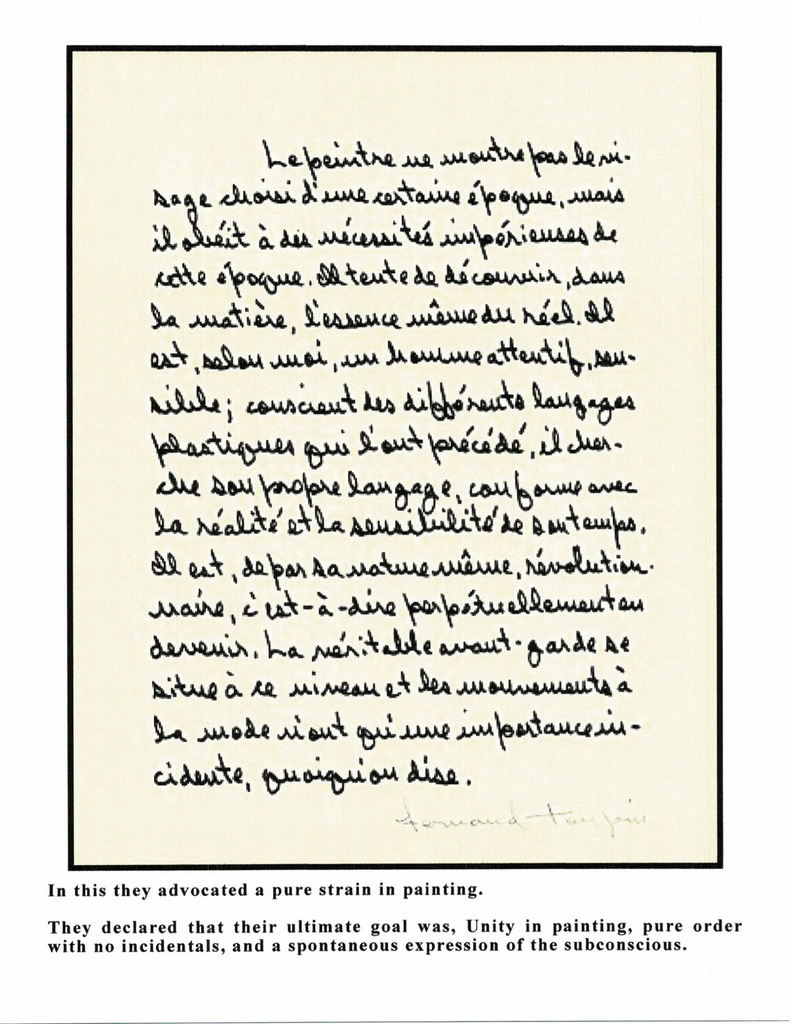 Le peintre ne montre pas le vi-
sage choisi d'une certaine époque, mais
il obéit à des nécessités impérieuses de
cette époque. Il tente de découvrir, dans
la matière, l'essence même du réel. Il
est, selon moi, un homme attentif, sen-
sible; conscient des différents langages
plastiques qui l'ont précédé, il cher-
che son propre langage, conforme avec
la réalité et la sensibilité de son temps.
Il est, de par sa nature même, révolution-
naire, c'est-à-dire perpétuellement en
devenir. La véritable avant-garde se
situe à ce niveau et les mouvements à
la mode n'ont qu'une importance in-
cidente, quoiqu'on dise.
Fernand Toupin
In this they advocated a pure strain in painting.
They declared that their ultimate goal was, Unity in painting, pure order
with no incidentals, and a spontaneous expression of the subconscious.